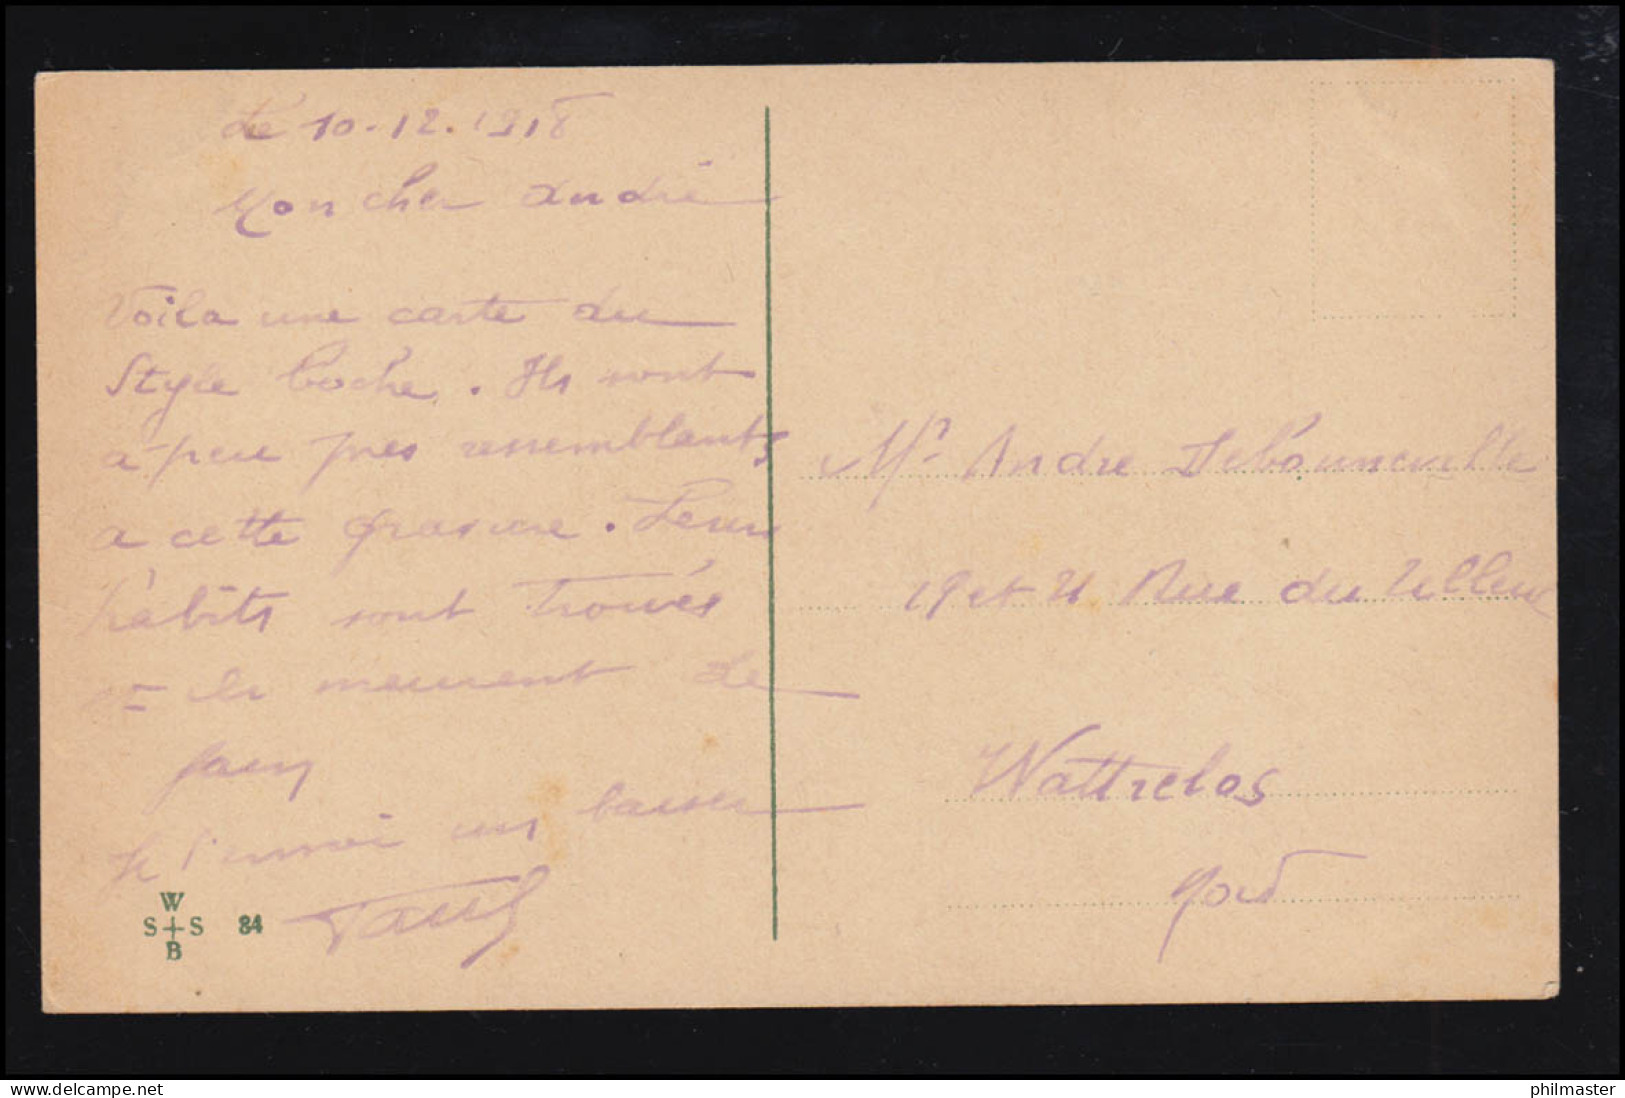 Le 10-12. 1918
Mon cher André
Voila une carte du
Style boche. Ils sont
a peu pres ressemblants
a cette gravure. Leurs
habits sont troués
et ils meurent de
faim
Je t'envoi un baiser
Paul
W
S S 84
B
Mr André Debonneville
19 et 21 Rue du
Wattrelos
Nord
www.delcampe.net
philmaster